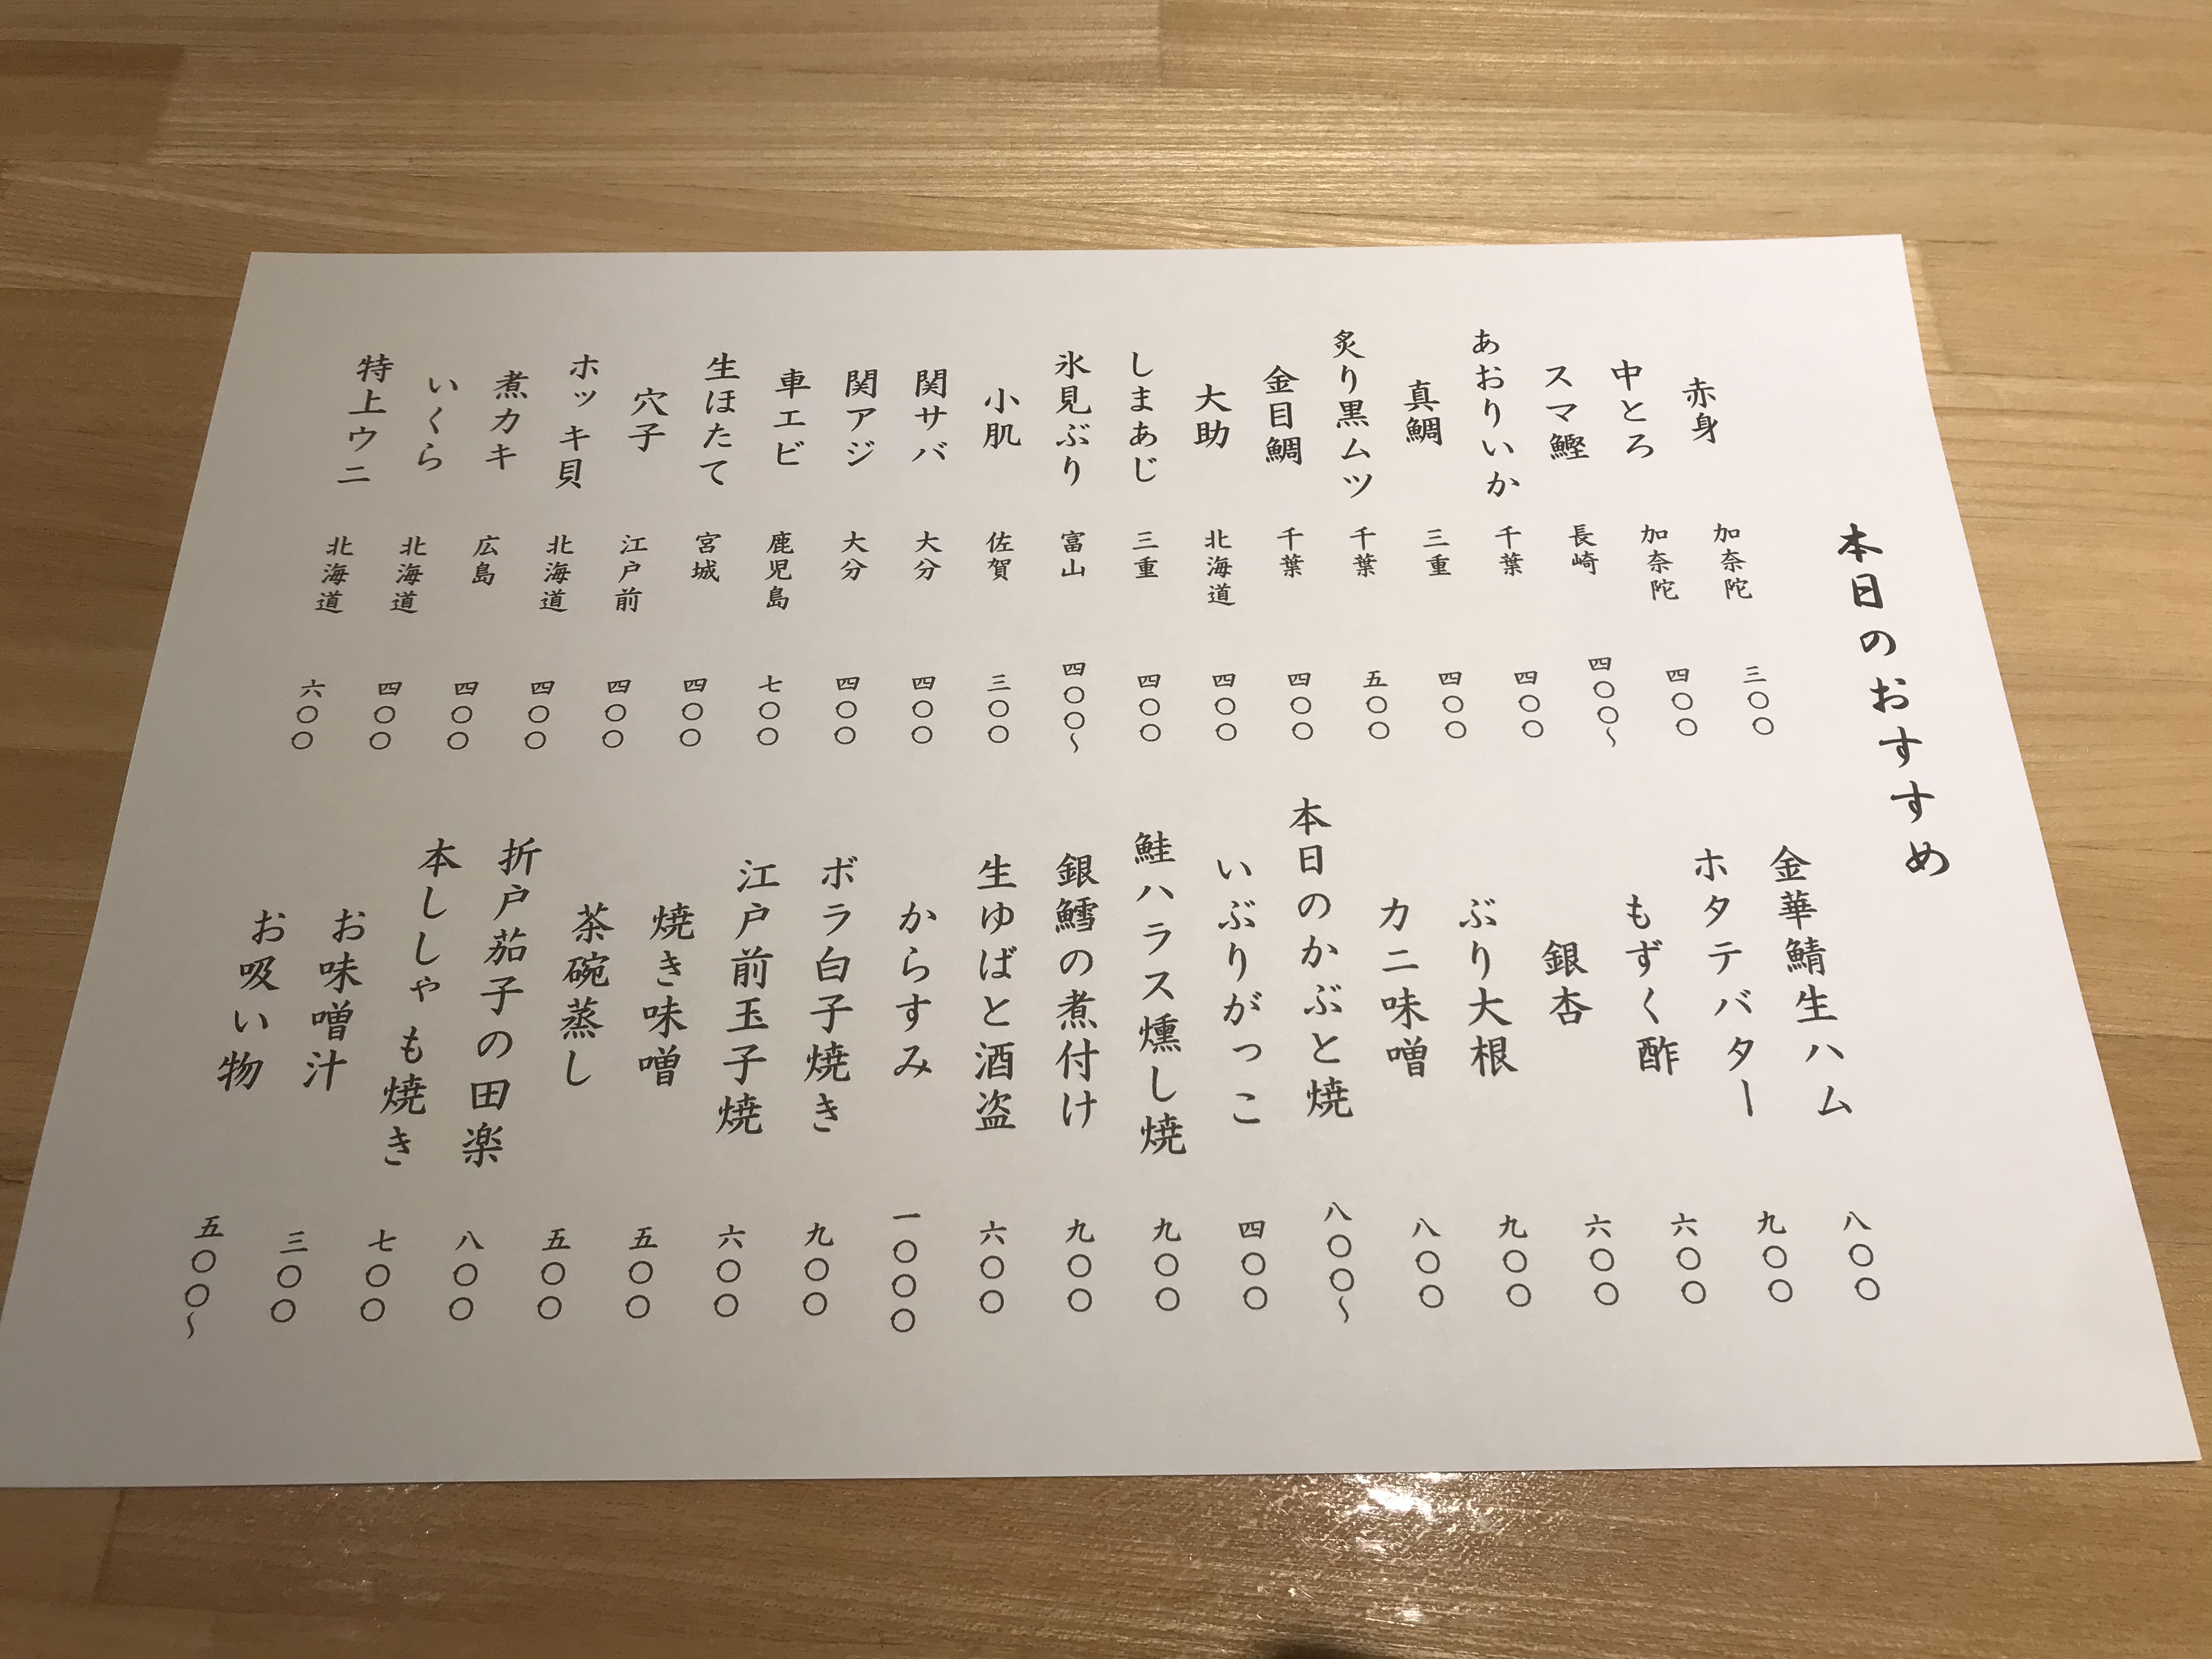 本日のおすすめ
赤身 加奈陀 三〇〇
中とろ 加奈陀 四〇〇
スマ鰹 長崎 四〇〇~
あおりいか 千葉 四〇〇
真鯛 三重 四〇〇
炙り黒ムツ 千葉 五〇〇
金目鯛 千葉 四〇〇
大助 北海道 四〇〇
しまあじ 三重 四〇〇
氷見ぶり 富山 四〇〇~
小肌 佐賀 三〇〇
関サバ 大分 四〇〇
関アジ 大分 四〇〇
車エビ 鹿児島 七〇〇
生ほたて 宮城 四〇〇
穴子 江戸前 四〇〇
ホッキ貝 北海道 四〇〇
煮カキ 広島 四〇〇
いくら 北海道 四〇〇
特上ウニ 北海道 六〇〇
金華鯖生ハム 八〇〇
ホタテバター 九〇〇
もずく酢 六〇〇
銀杏 六〇〇
ぶり大根 九〇〇
カニ味噌 八〇〇
本日のかぶと焼 八〇〇~
いぶりがっこ 四〇〇
鮭ハラス燻し焼 九〇〇
銀鱈の煮付け 九〇〇
生ゆばと酒盗 六〇〇
からすみ 一〇〇〇
ボラ白子焼き 九〇〇
江戸前玉子焼 六〇〇
焼き味噌 五〇〇
茶碗蒸し 五〇〇
折戸茄子の田楽 八〇〇
本ししゃも焼き 七〇〇
お味噌汁 三〇〇
お吸い物 五〇〇~